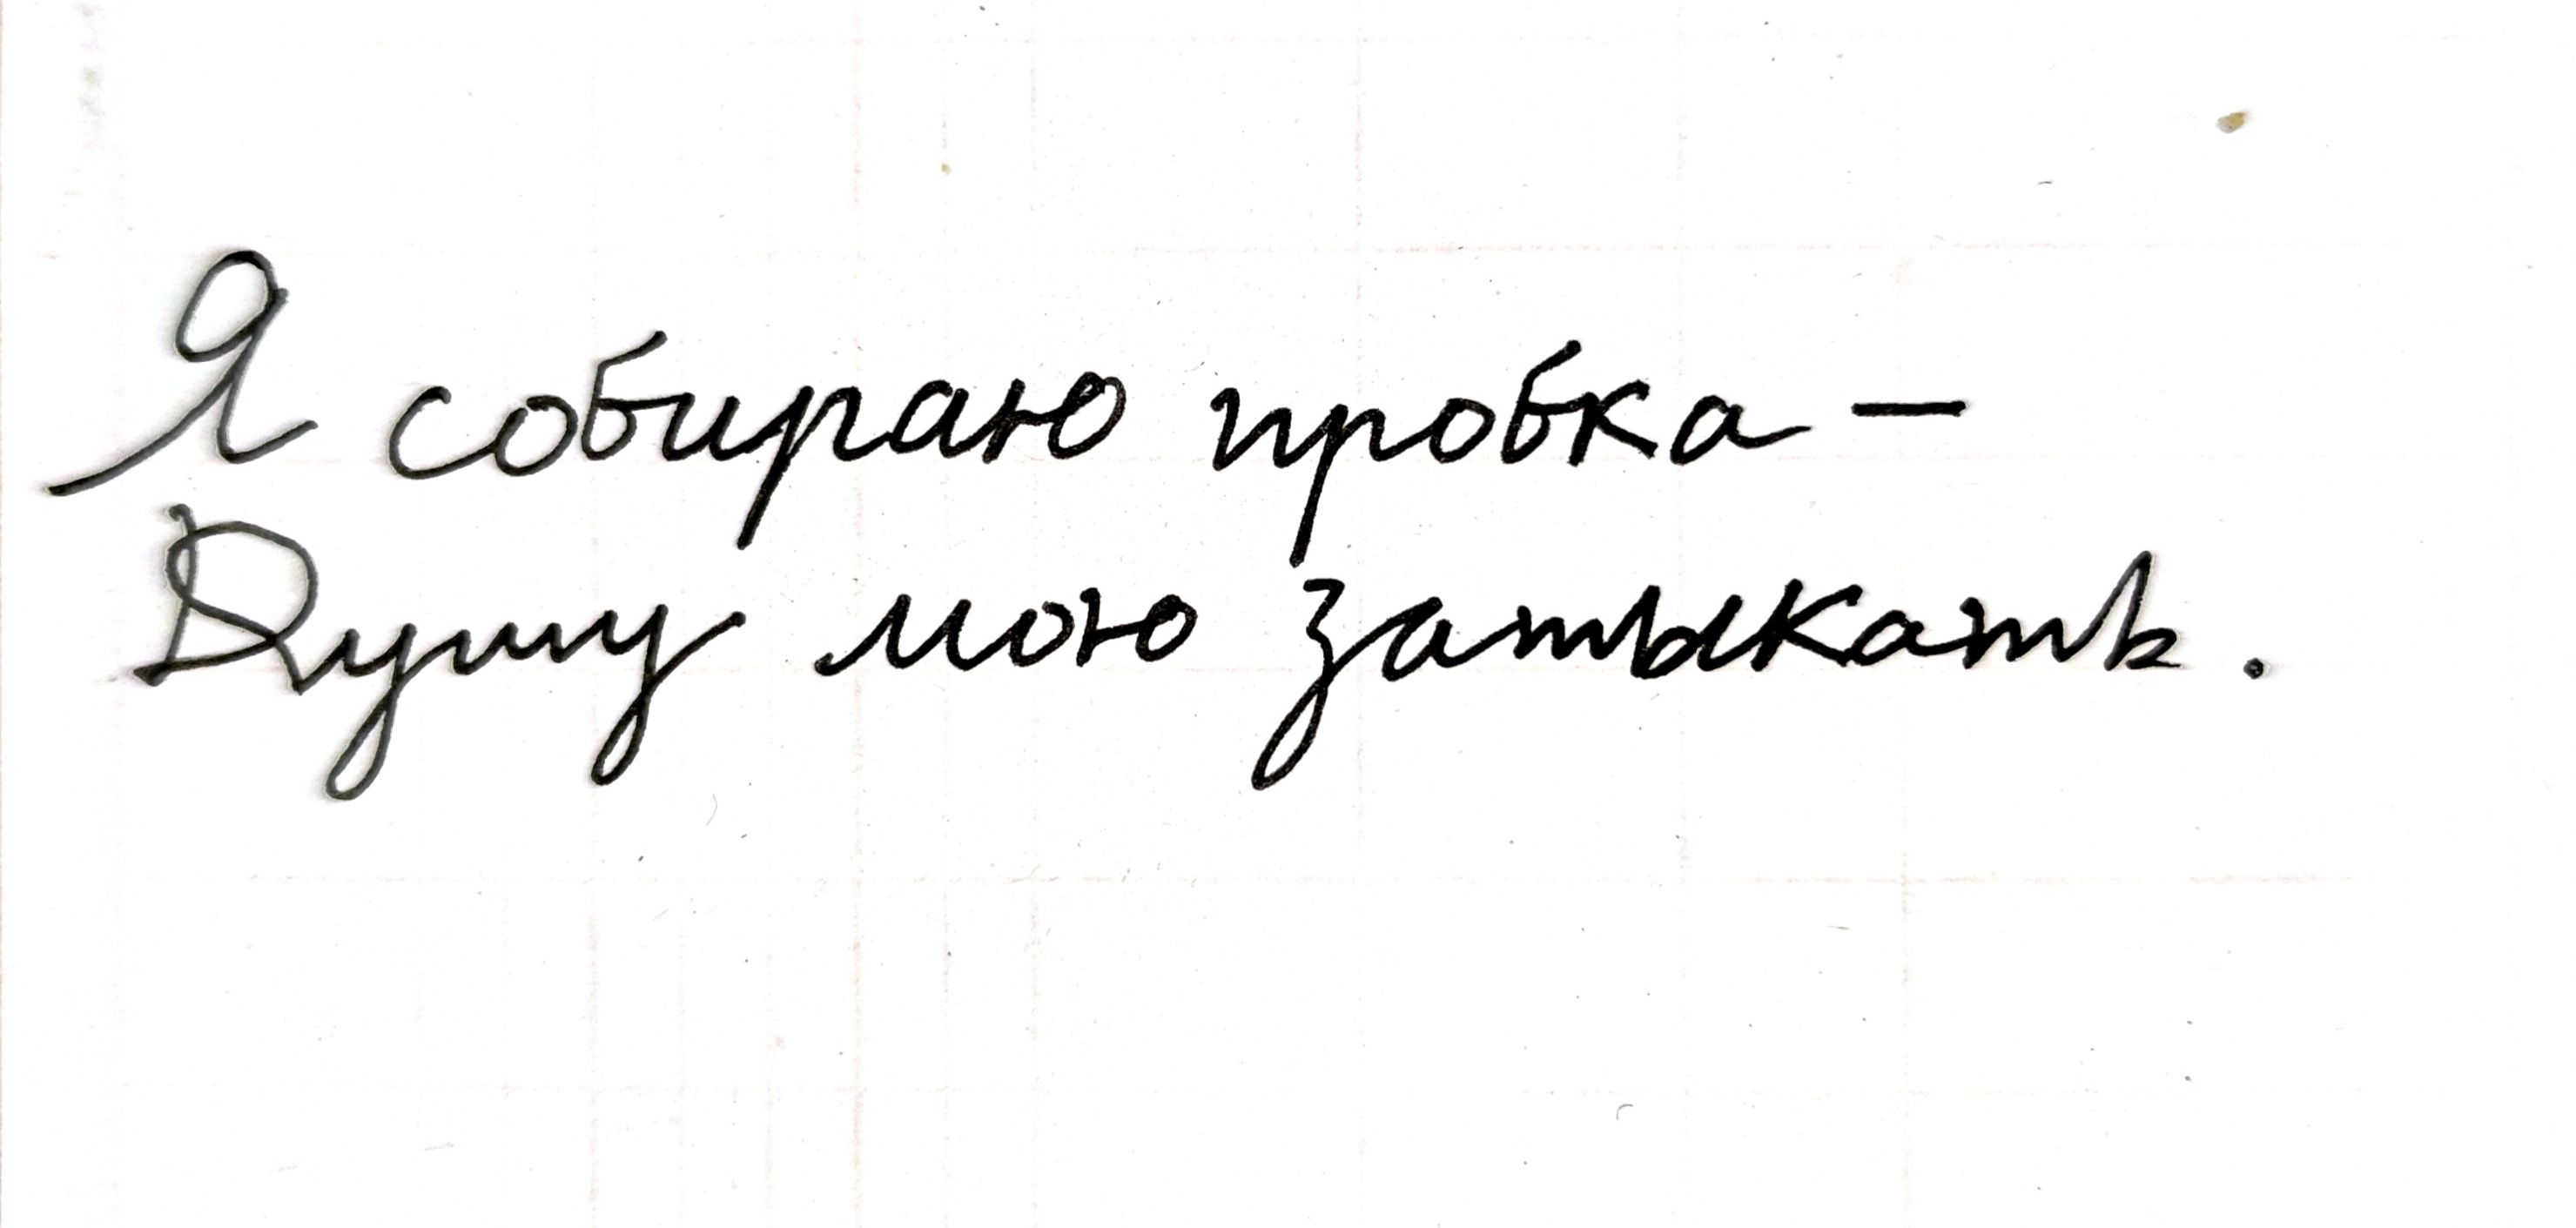 Я собираю пробка –
Душу мою затыкать.